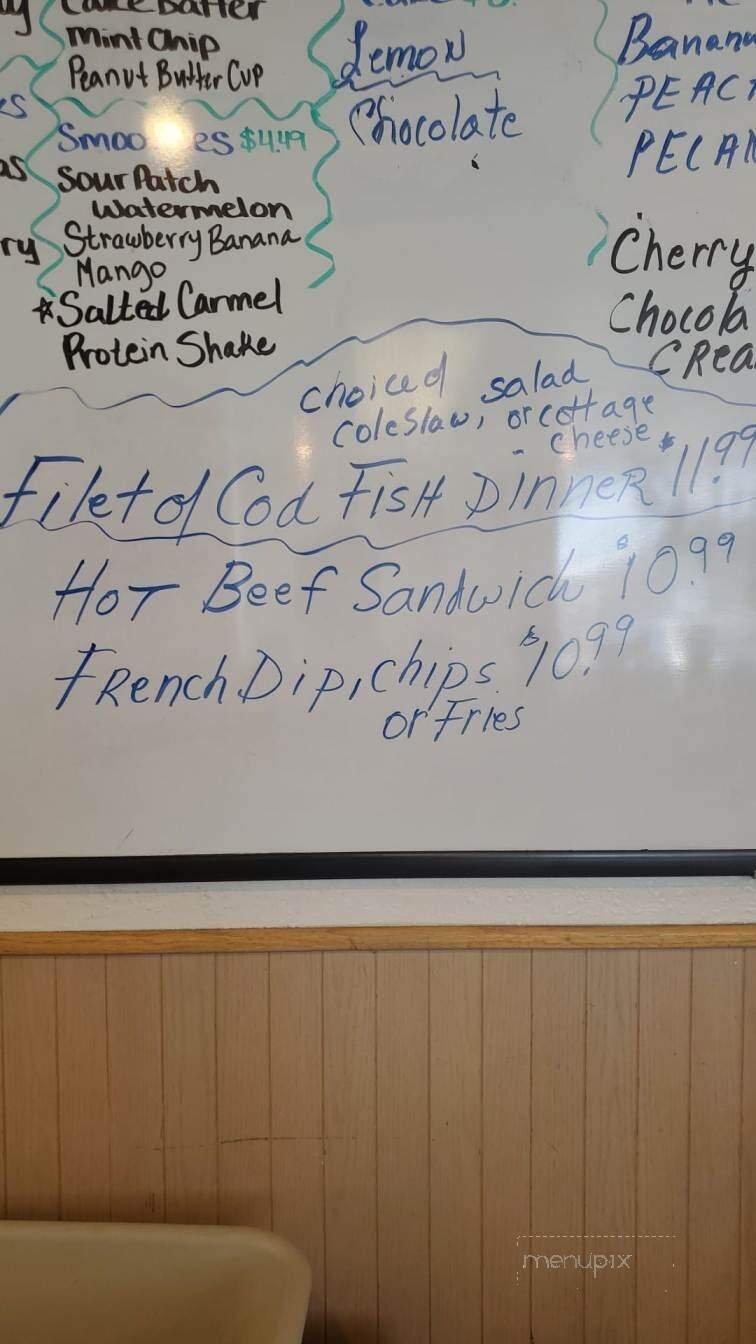 Cake Batter
Mint Chip
Peanut Butter Cup
Smoo es $4.49
Sour Patch
Watermelon
Strawberry Banana
Mango
*Salted Carmel
Protein Shake
Lemon
Chocolate
Banana
PEAC
PECAN
Cherry
Chocola
CREA
choice of salad
coleslaw, or cottage
cheese
Filet of Cod FISH DINNER $11.99
HOT Beef Sandwich $10.99
FRench Dip, chips $10.99
or Fries
menupix